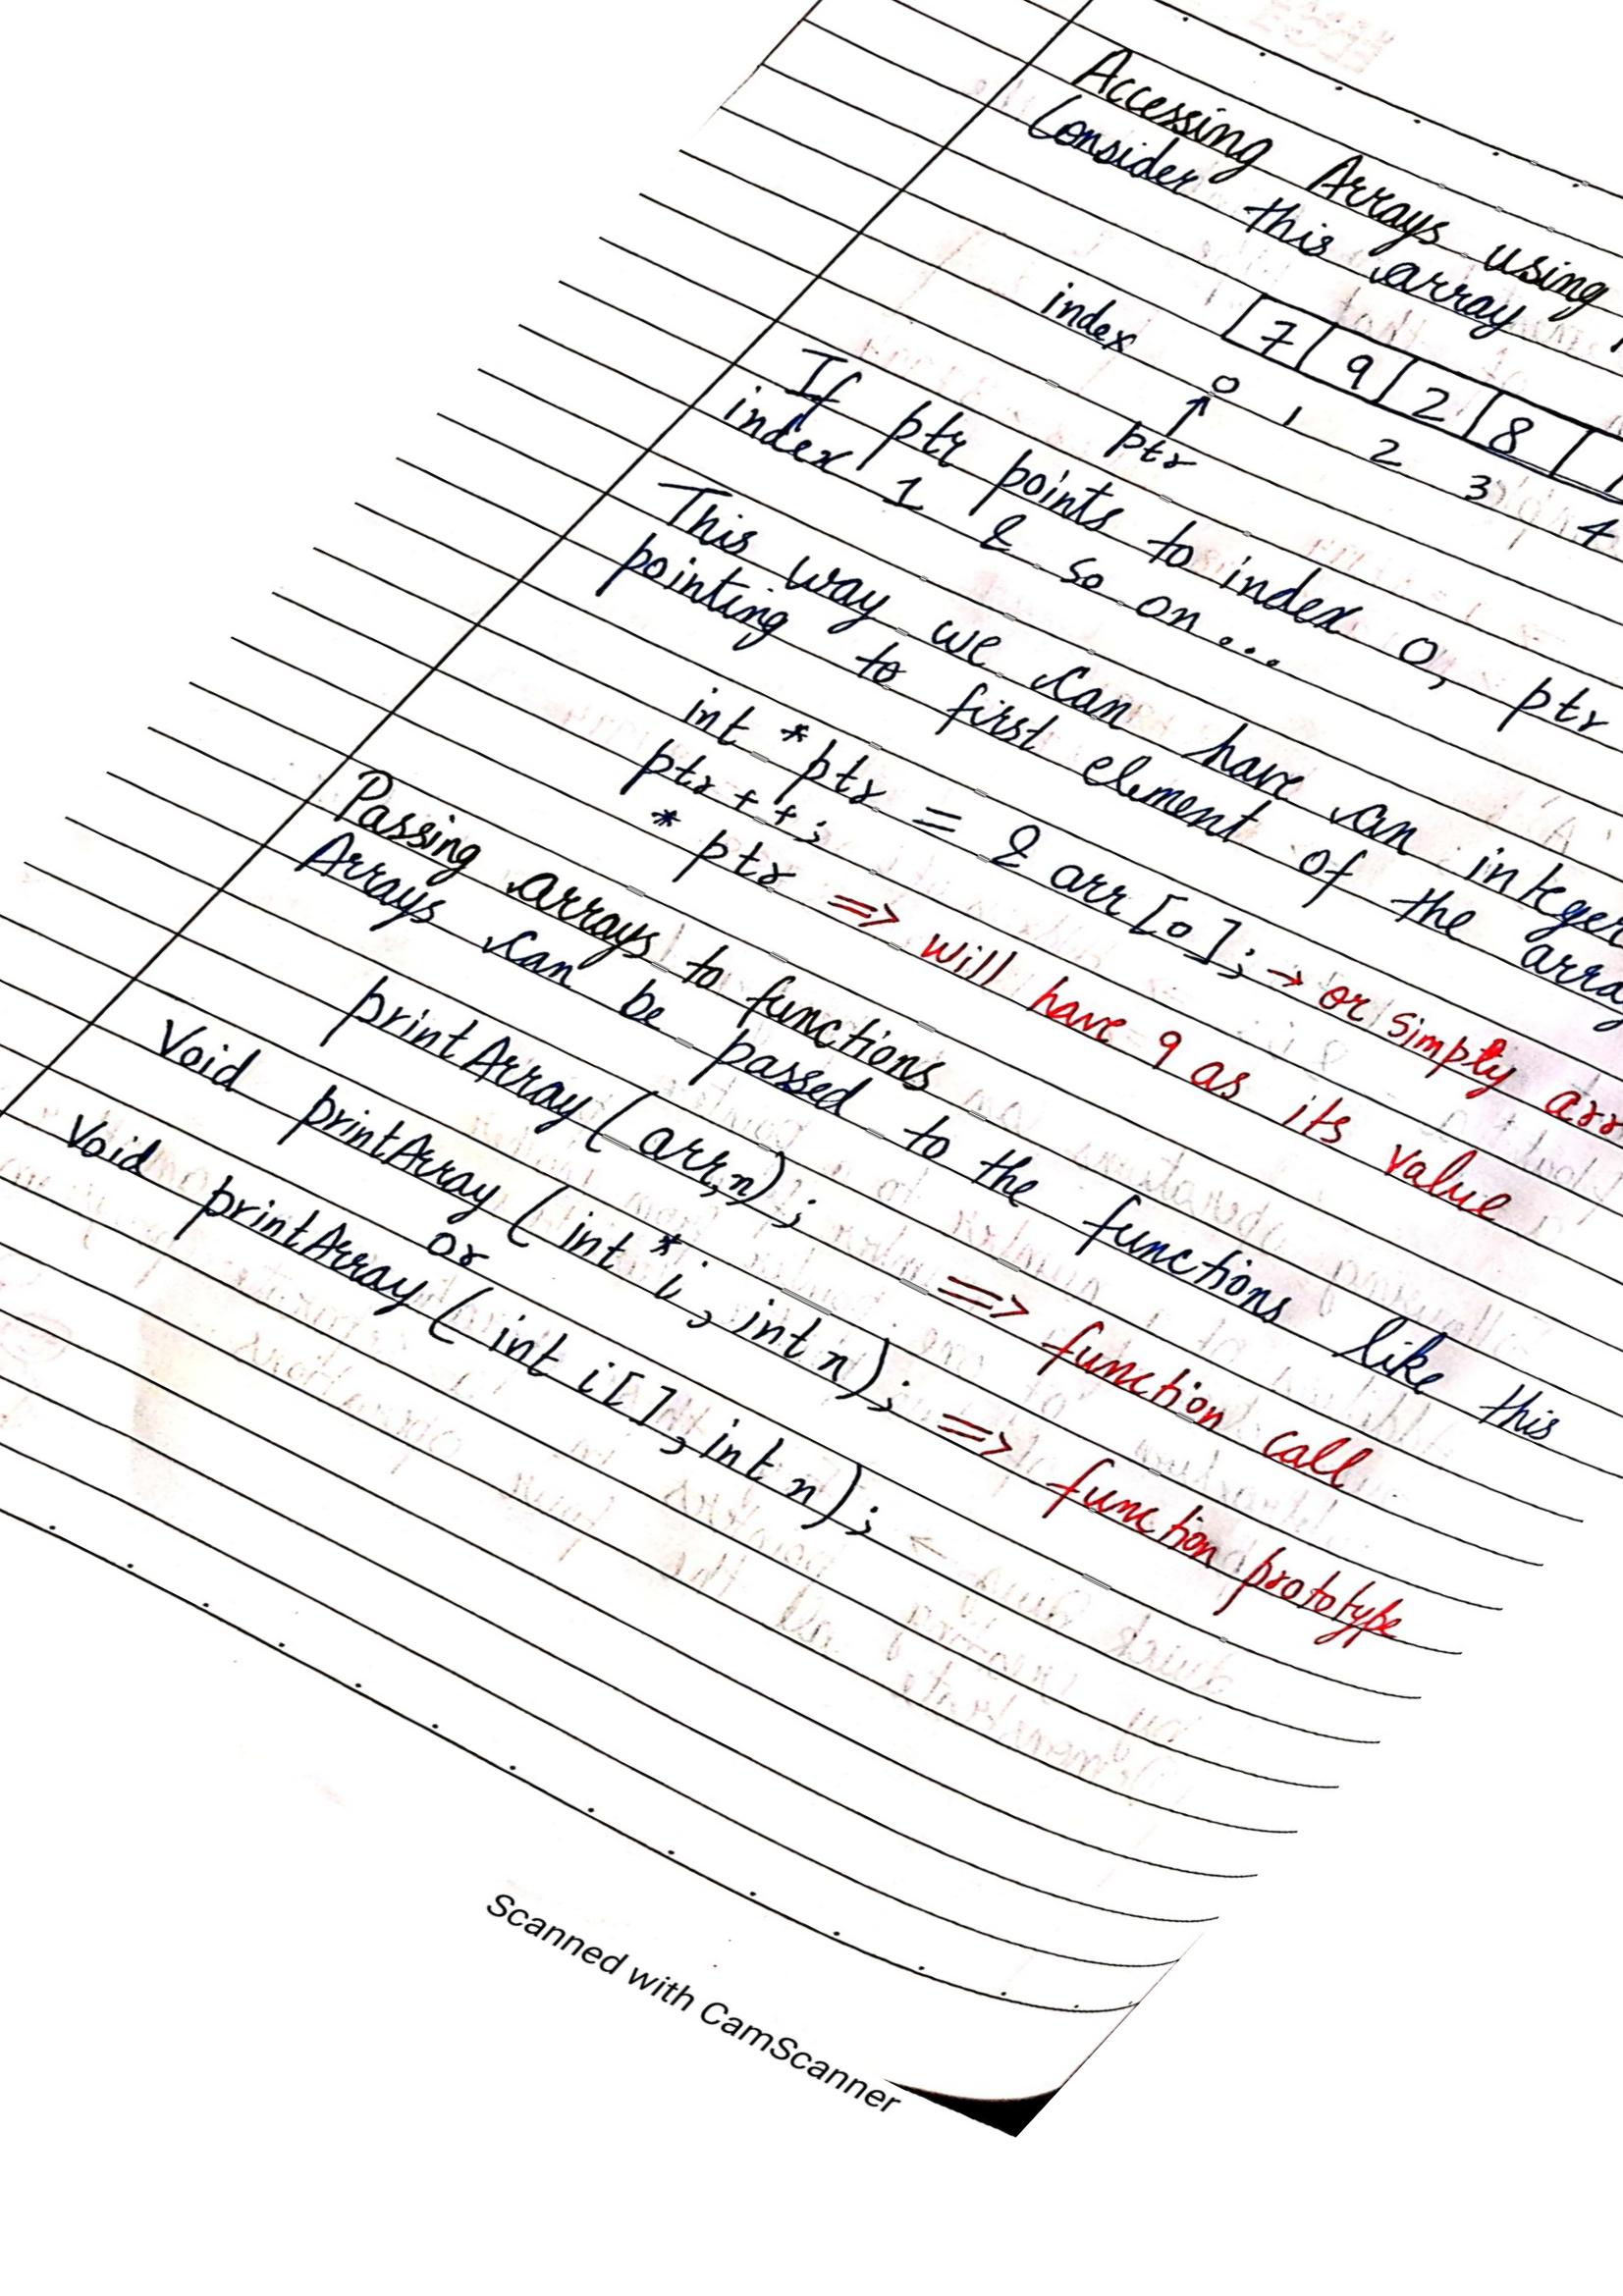 Accessing Arrays using
Consider this array
7 9 2 8
index 0 1 2 3 4
ptr
If ptr points to index 0, ptr
index 1 & so on...
This way we can have an integer
pointing to first element of the array
int *ptr = & arr[0]; → or simply arr
ptr++;
* ptr => will have 9 as its value
Passing arrays to functions
Arrays can be passed to the functions like this
printArray (arr,n); => function call
Void printArray (int * i, int n); => function prototype
or
Void printArray (int i[], int n);
Scanned with CamScanner